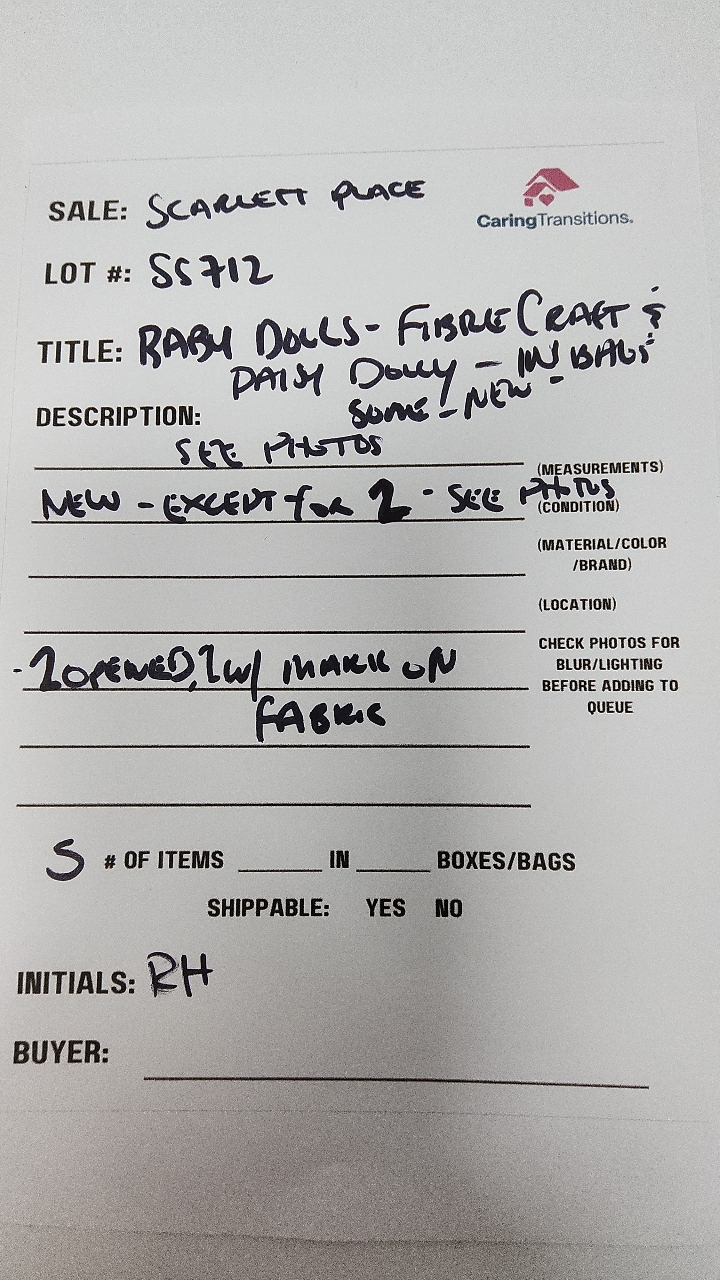 SALE: SCARLETT PLACE
CaringTransitions.
LOT #: SS712
TITLE: BABY DOLLS - FIBRE CRAFT &
DAISY DOLLY - IN BAGS
SOME - NEW -
DESCRIPTION:
SEE PHOTOS
(MEASUREMENTS)
NEW - EXCEPT for 2 - SEE PHOTOS
(CONDITION)
(MATERIAL/COLOR
/BRAND)
(LOCATION)
CHECK PHOTOS FOR
BLUR/LIGHTING
BEFORE ADDING TO
QUEUE
- 1 OPENED, 1 W/ MARK ON
FABRIC
5 # OF ITEMS ______ IN ______ BOXES/BAGS
SHIPPABLE: YES NO
INITIALS: RH
BUYER: